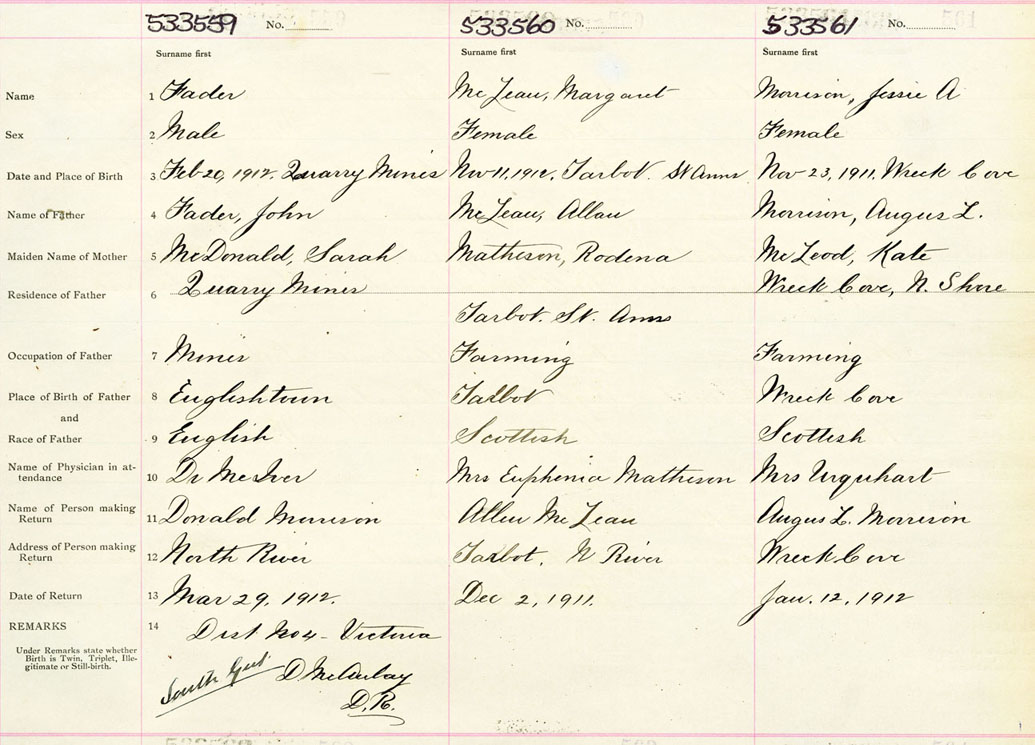 533559 No. 533560 No. 533561 No.
Surname first Surname first Surname first
Name 1 Fader McLean, Margaret Morrison, Jessie A
Sex 2 Male Female Female
Date and Place of Birth 3 Feb 20, 1912. Quarry Mines Nov 11, 1911. Tarbot St Anns Nov 23, 1911. Wreck Cove
Name of Father 4 Fader, John McLean, Allan Morrison, Angus L.
Maiden Name of Mother 5 McDonald, Sarah Matheson, Rodena McLeod, Kate
Residence of Father 6 Quarry Mines Wreck Cove, N. Shore
Tarbot. St. Anns
Occupation of Father 7 Miner Farming Farming
Place of Birth of Father 8 Englishtown Tarbot Wreck Cove
and
Race of Father 9 English Scottish Scottish
Name of Physician in at-
tendance 10 Dr McIver Mrs Euphemia Matheson Mrs Urquhart
Name of Person making
Return 11 Donald Morrison Allen McLean Angus L. Morrison
Address of Person making
Return 12 North River Tarbot, N River Wreck Cove
Date of Return 13 Mar 29, 1912. Dec 2, 1911. Jan. 12, 1912
REMARKS 14 Dist No 4 - Victoria
Under Remarks state whether
Birth is Twin, Triplet, Ille-
gitimate or Still-birth.
South Gut D McAulay
D.R.